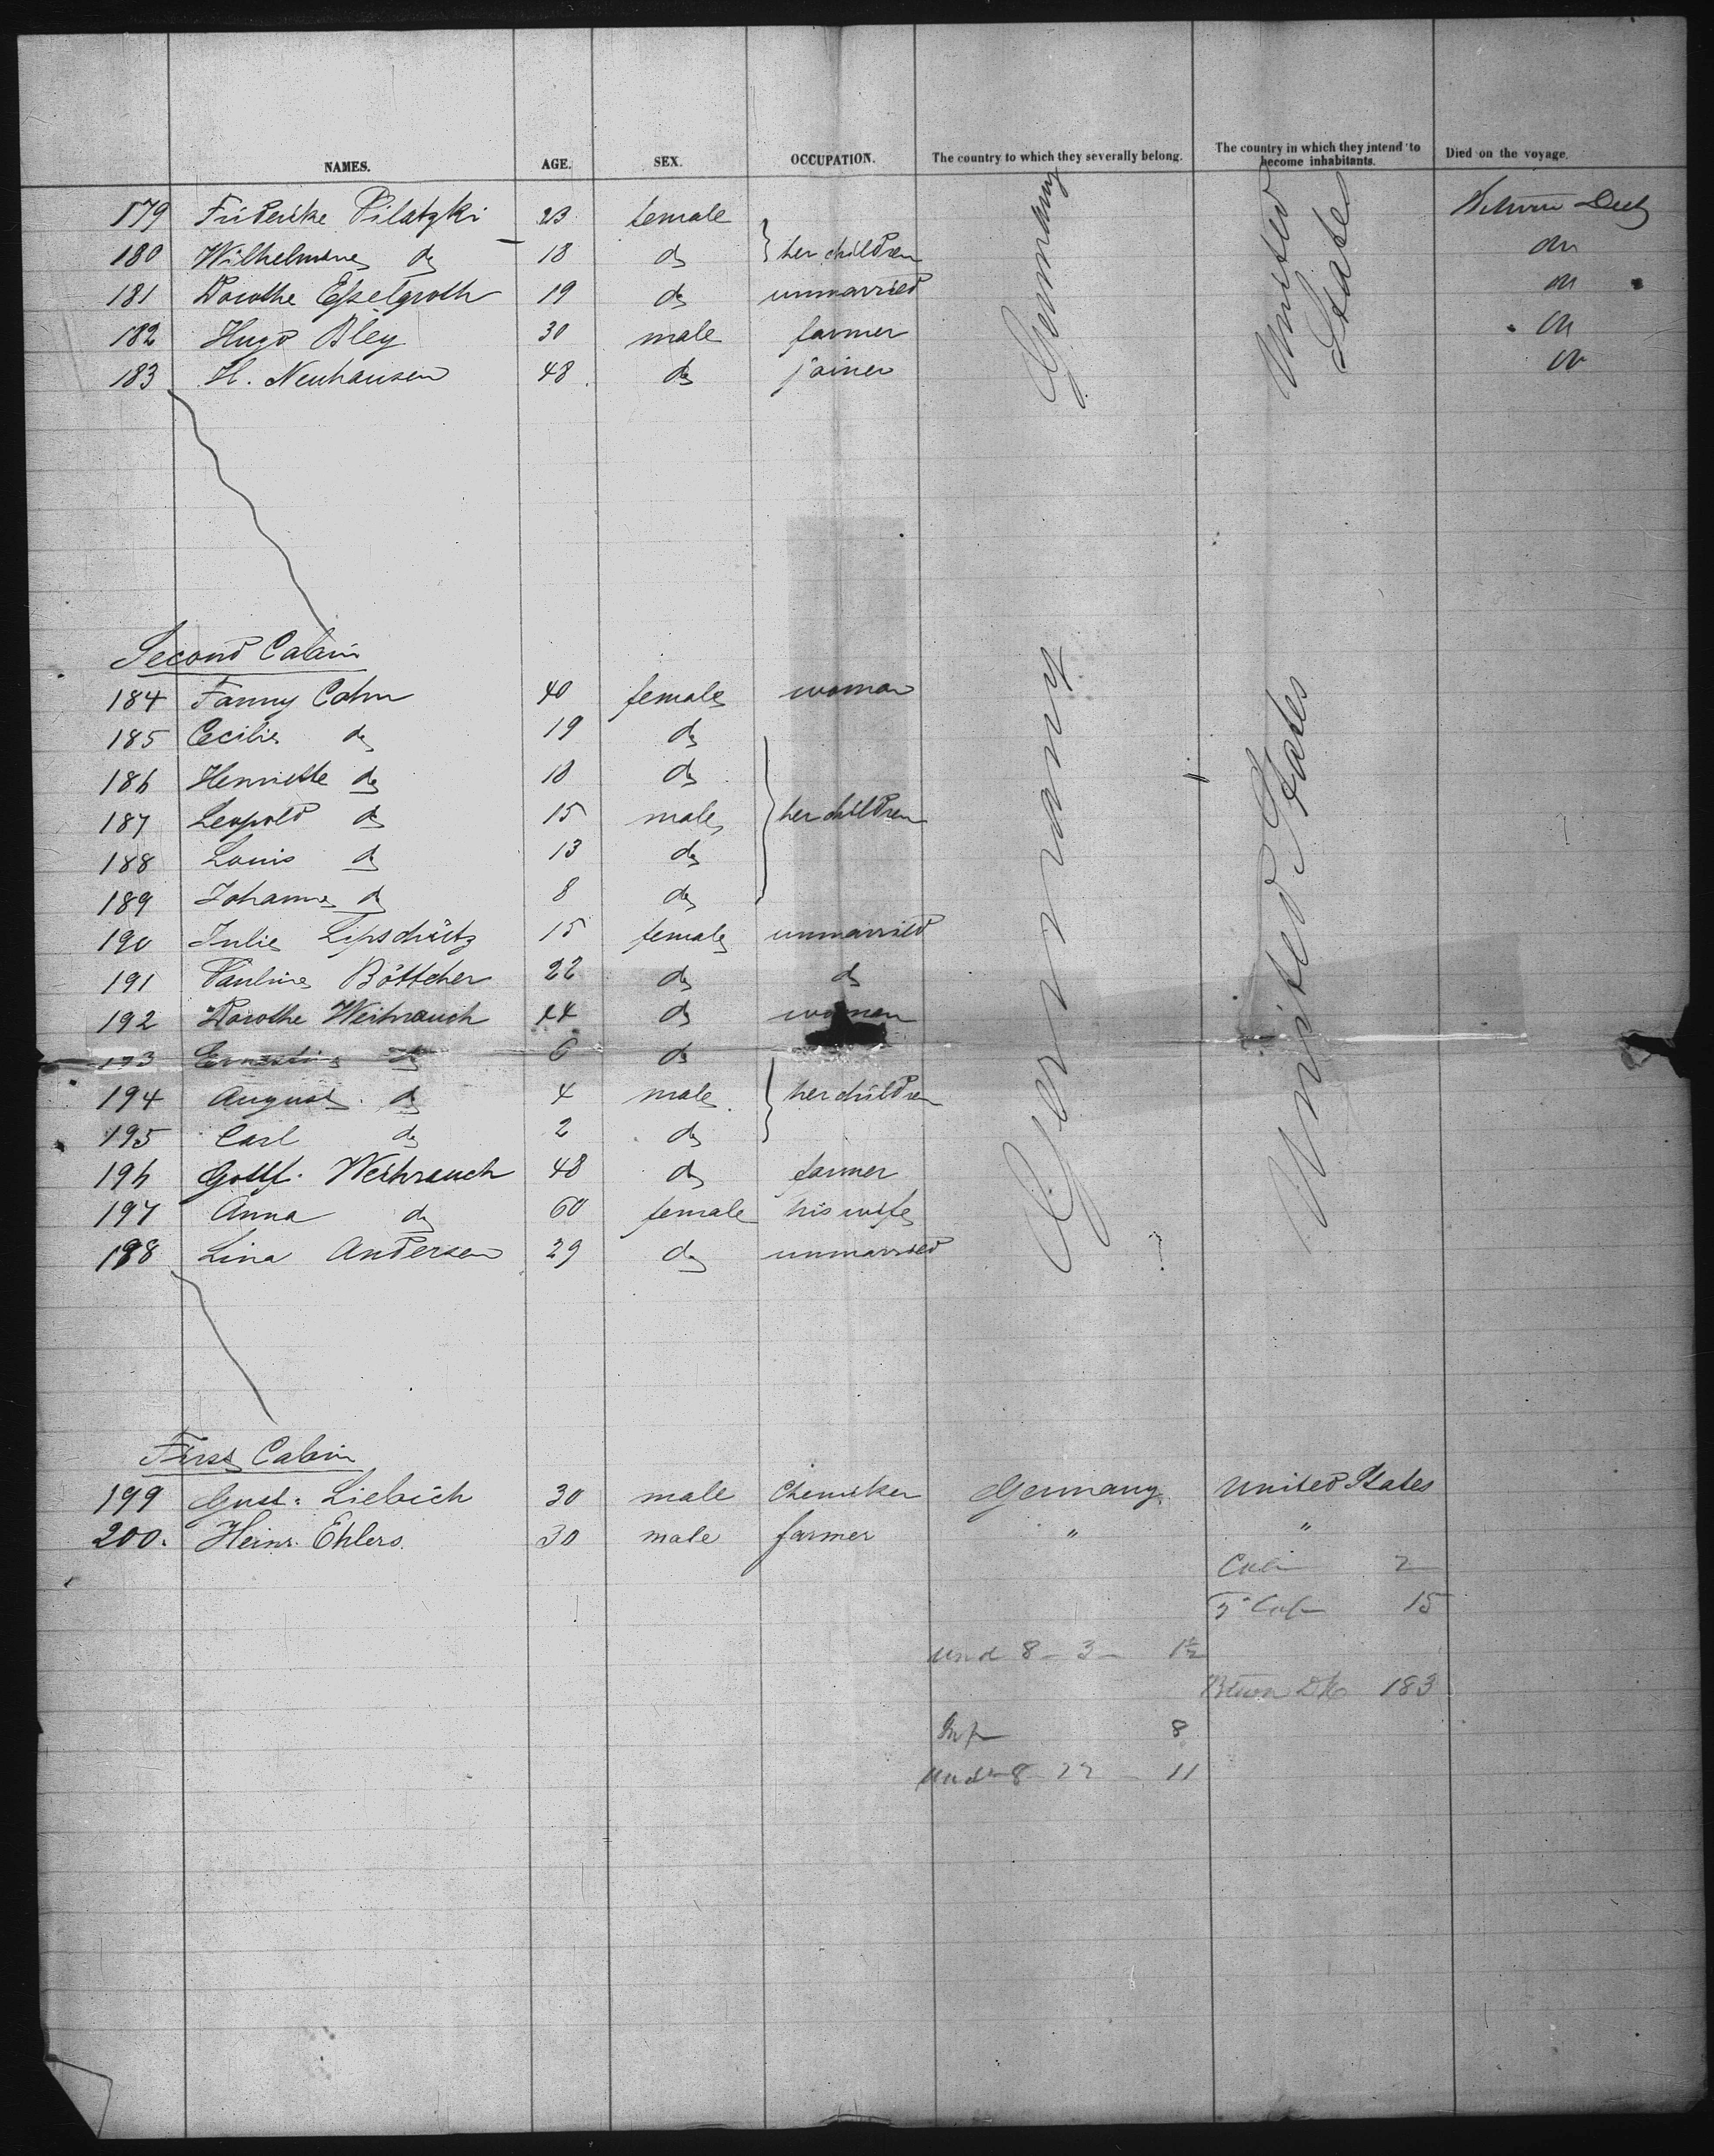 NAMES. AGE. SEX. OCCUPATION. The country to which they severally belong. The country in which they intend to become inhabitants. Died on the voyage.
179 Friderike Pilatzki 23 female
180 Wilhelmine do 18 do her children
181 Dorothe Esselgroth 19 do unmarried
182 Hugo Bley 30 male farmer
183 H. Neuhausen 48 do joiner
Germany
United States
Second Cabin
184 Fanny Cohn 40 female woman
185 Cecilie do 19 do
186 Henriette do 18 do
187 Leopold do 15 male her children
188 Louis do 13 do
189 Johanne do 8 do
190 Julie Lipschütz 15 female unmarried
191 Pauline Böttcher 22 do do
192 Dorothe Weihrauch 44 do woman
193 Ernestine do 6 do
194 August do 4 male her children
195 Carl do 2 do
196 Gottf. Weihrauch 48 do farmer
197 Anna do 60 female his wife
198 Lina Andersen 29 do unmarried
Germany
United States
First Cabin
199 Gust. Liebich 30 male Chemiker Germany United States
200. Heinr. Ehlers 30 male farmer " "
Cabin 2
2d Cab 15
und 8 - 3 - 1½
183
Inf 8
Under 8 - 22 - 11